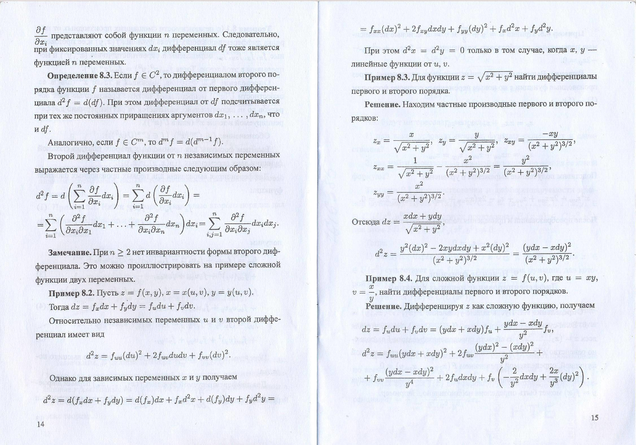 ∂f/∂xᵢ представляют собой функции n переменных. Следовательно,
при фиксированных значениях dxᵢ дифференциал df тоже является
функцией n переменных.
Определение 8.3. Если f ∈ C², то дифференциалом второго по-
рядка функции f называется дифференциал от первого дифферен-
циала d²f = d(df). При этом дифференциал от df подсчитывается
при тех же постоянных приращениях аргументов dx₁, . . . , dxₙ, что
и df.
Аналогично, если f ∈ Cᵐ, то dᵐf = d(dᵐ⁻¹f).
Второй дифференциал функции от n независимых переменных
выражается через частные производные следующим образом:
d²f = d (∑ᵢ₌₁ⁿ ∂f/∂xᵢ dxᵢ) = ∑ᵢ₌₁ⁿ d (∂f/∂xᵢ dxᵢ) =
= ∑ᵢ₌₁ⁿ (∂²f/∂xᵢ∂x₁ dx₁ + . . . + ∂²f/∂xᵢ∂xₙ dxₙ) dxᵢ = ∑ᵢ,ⱼ₌₁ⁿ ∂²f/∂xᵢ∂xⱼ dxᵢdxⱼ.
Замечание. При n ≥ 2 нет инвариантности формы второго диф-
ференциала. Это можно проиллюстрировать на примере сложной
функции двух переменных.
Пример 8.2. Пусть z = f(x, y), x = x(u, v), y = y(u, v).
Тогда dz = fₓdx + f_y dy = f_u du + f_v dv.
Относительно независимых переменных u и v второй диффе-
ренциал имеет вид
d²z = f_uu(du)² + 2f_uv dudv + f_vv(dv)².
Однако для зависимых переменных x и y получаем
d²z = d(fₓdx + f_y dy) = d(fₓ)dx + fₓd²x + d(f_y)dy + f_y d²y =
14
= fₓₓ(dx)² + 2f_xy dxdy + f_yy(dy)² + fₓd²x + f_y d²y.
При этом d²x = d²y = 0 только в том случае, когда x, y —
линейные функции от u, v.
Пример 8.3. Для функции z = √(x² + y²) найти дифференциалы
первого и второго порядка.
Решение. Находим частные производные первого и второго по-
рядков:
zₓ = x/√(x² + y²), z_y = y/√(x² + y²), z_xy = −xy/(x² + y²)^{3/2},
zₓₓ = 1/√(x² + y²) − x²/(x² + y²)^{3/2} = y²/(x² + y²)^{3/2},
z_yy = x²/(x² + y²)^{3/2}.
Отсюда dz = (xdx + ydy)/√(x² + y²),
d²z = (y²(dx)² − 2xydxdy + x²(dy)²)/(x² + y²)^{3/2} = (ydx − xdy)²/(x² + y²)^{3/2}.
Пример 8.4. Для сложной функции z = f(u, v), где u = xy,
v = x/y, найти дифференциалы первого и второго порядков.
Решение. Дифференцируя z как сложную функцию, получаем
dz = f_u du + f_v dv = (ydx + xdy)f_u + (ydx − xdy)/y² f_v,
d²z = f_uu(ydx + xdy)² + 2f_uv ((ydx)² − (xdy)²)/y² +
+ f_vv (ydx − xdy)²/y⁴ + 2f_u dxdy + f_v (−2/y² dxdy + 2x/y³ (dy)²).
15